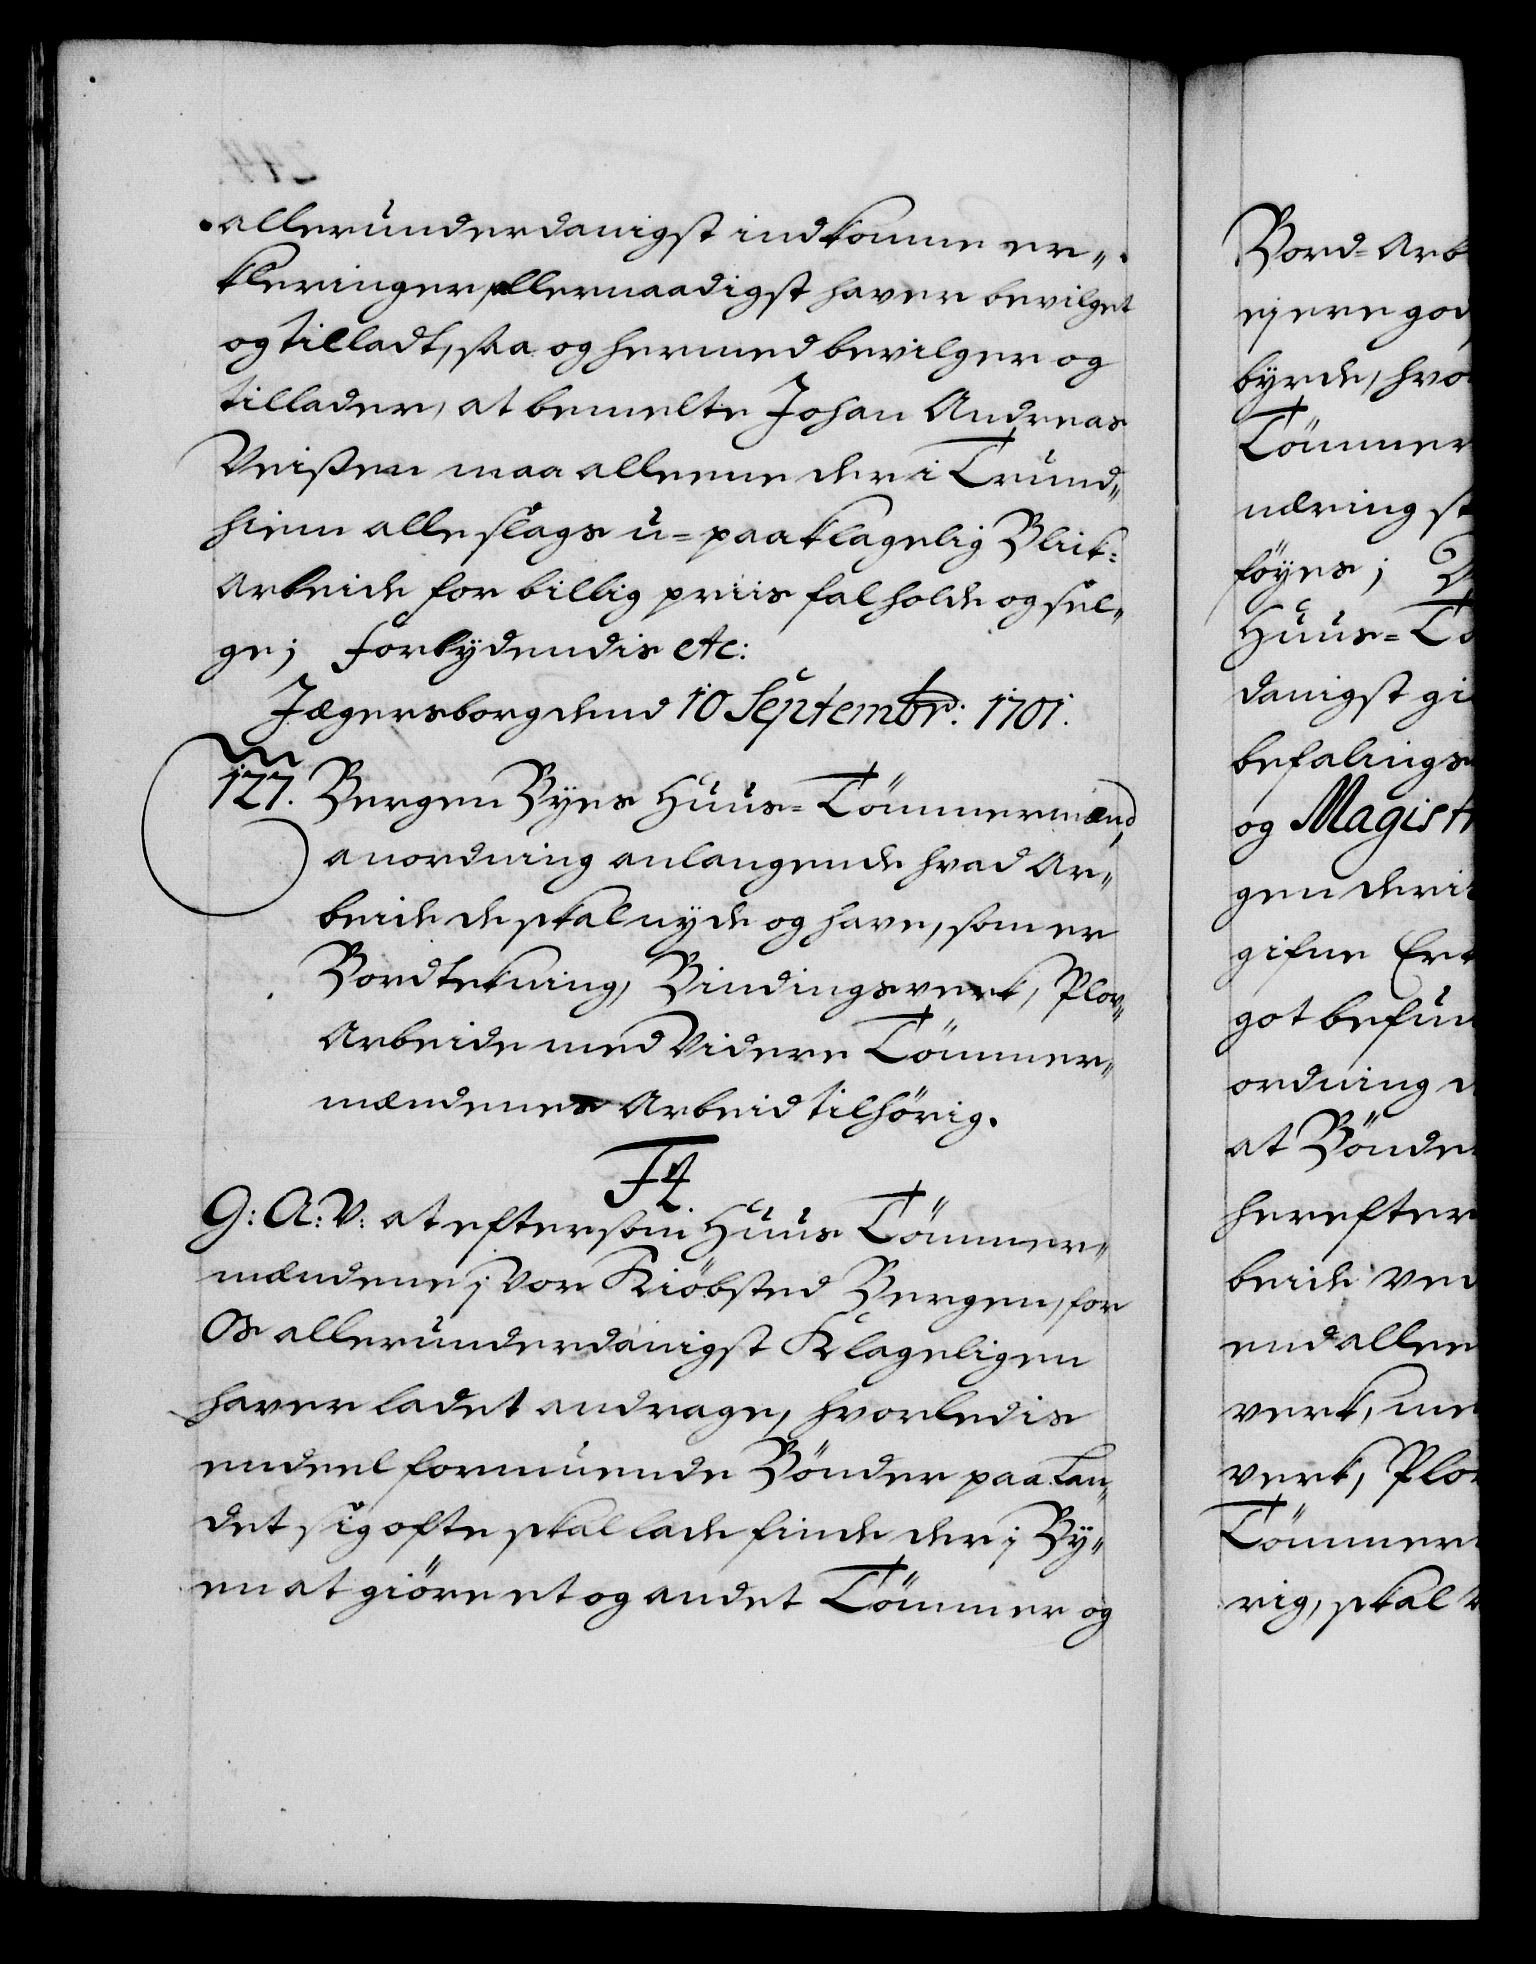 allerunderdanigst indkomne er„
kleringer, allernaadigst haver bevilget
og tilladt, saa og hermed bevilger og
tillader, at bemelte Johan Andreas
Veissen maa alleene der i Trund„
hiem alle slags u-paaklagelig Blik-
Arbeide for billig priis falholde og sel„
ge; Forbydendis etc:
Jægersborg dend 10 Septembr: 1701.
127. Bergen Byes Huus-Tömmermænd,
anordning anlangende hvad Ar„
beide de skal nyde og have, som er
Bordtekning, Bindingsverk, Plov„
Arbeide med Videre Tömmer„
mændenes Arbeid tilhörig.
F4.
G: A: V: at eftersom Huus Tömmer„
mændene i Vor Kiöbsted Bergen, for
Os allerunderdanigst Klageligen
haver ladet andrage, hvorledis
endeel formuende Bönder paa Lan„
det sig ofte skal lade finde der i By„
en at giöre et og andet Tömmer og
Bord-Arb
ejere god
byrde, hvo
Tömmer
næring st
föyes;
Huus-Tö
danigst gi
befalings
og Magist
gen derit
gifne Erk
got befun
ordning
at Bönder
herefter
beide ved
end alleen
verk, me
verk, Plov
Tömmer
rig, skal